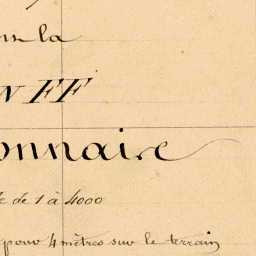 la
FF
onnaire
de 1 à 4000
pour 4 mètres sur le terrain